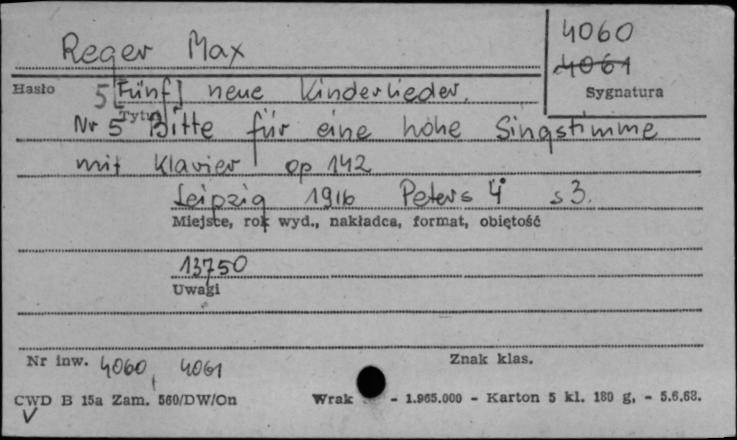 4060
Reger Max
4061
Hasło
Sygnatura
5 [Fünf] neue Kinderlieder.
Tytuł
Nr 5 Bitte für eine hohe Singstimme
mit Klavier op 142
Leipzig 1916 Peters 4° s 3.
Miejsce, rok wyd., nakładca, format, obiętość
13750
Uwagi
Nr inw. 4060, 4061
Znak klas.
CWD B 15a Zam. 560/DW/On Wrak - 1.965.000 - Karton 5 kl. 180 g, - 5.6.68.